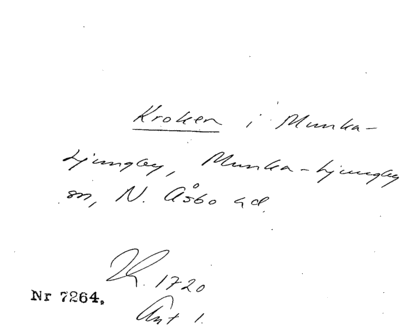 Kroken i Munka-
Ljungby, Munka-Ljungby
sn, N. Åsbo hd.
1720
Nr 7264.
Ant 1.